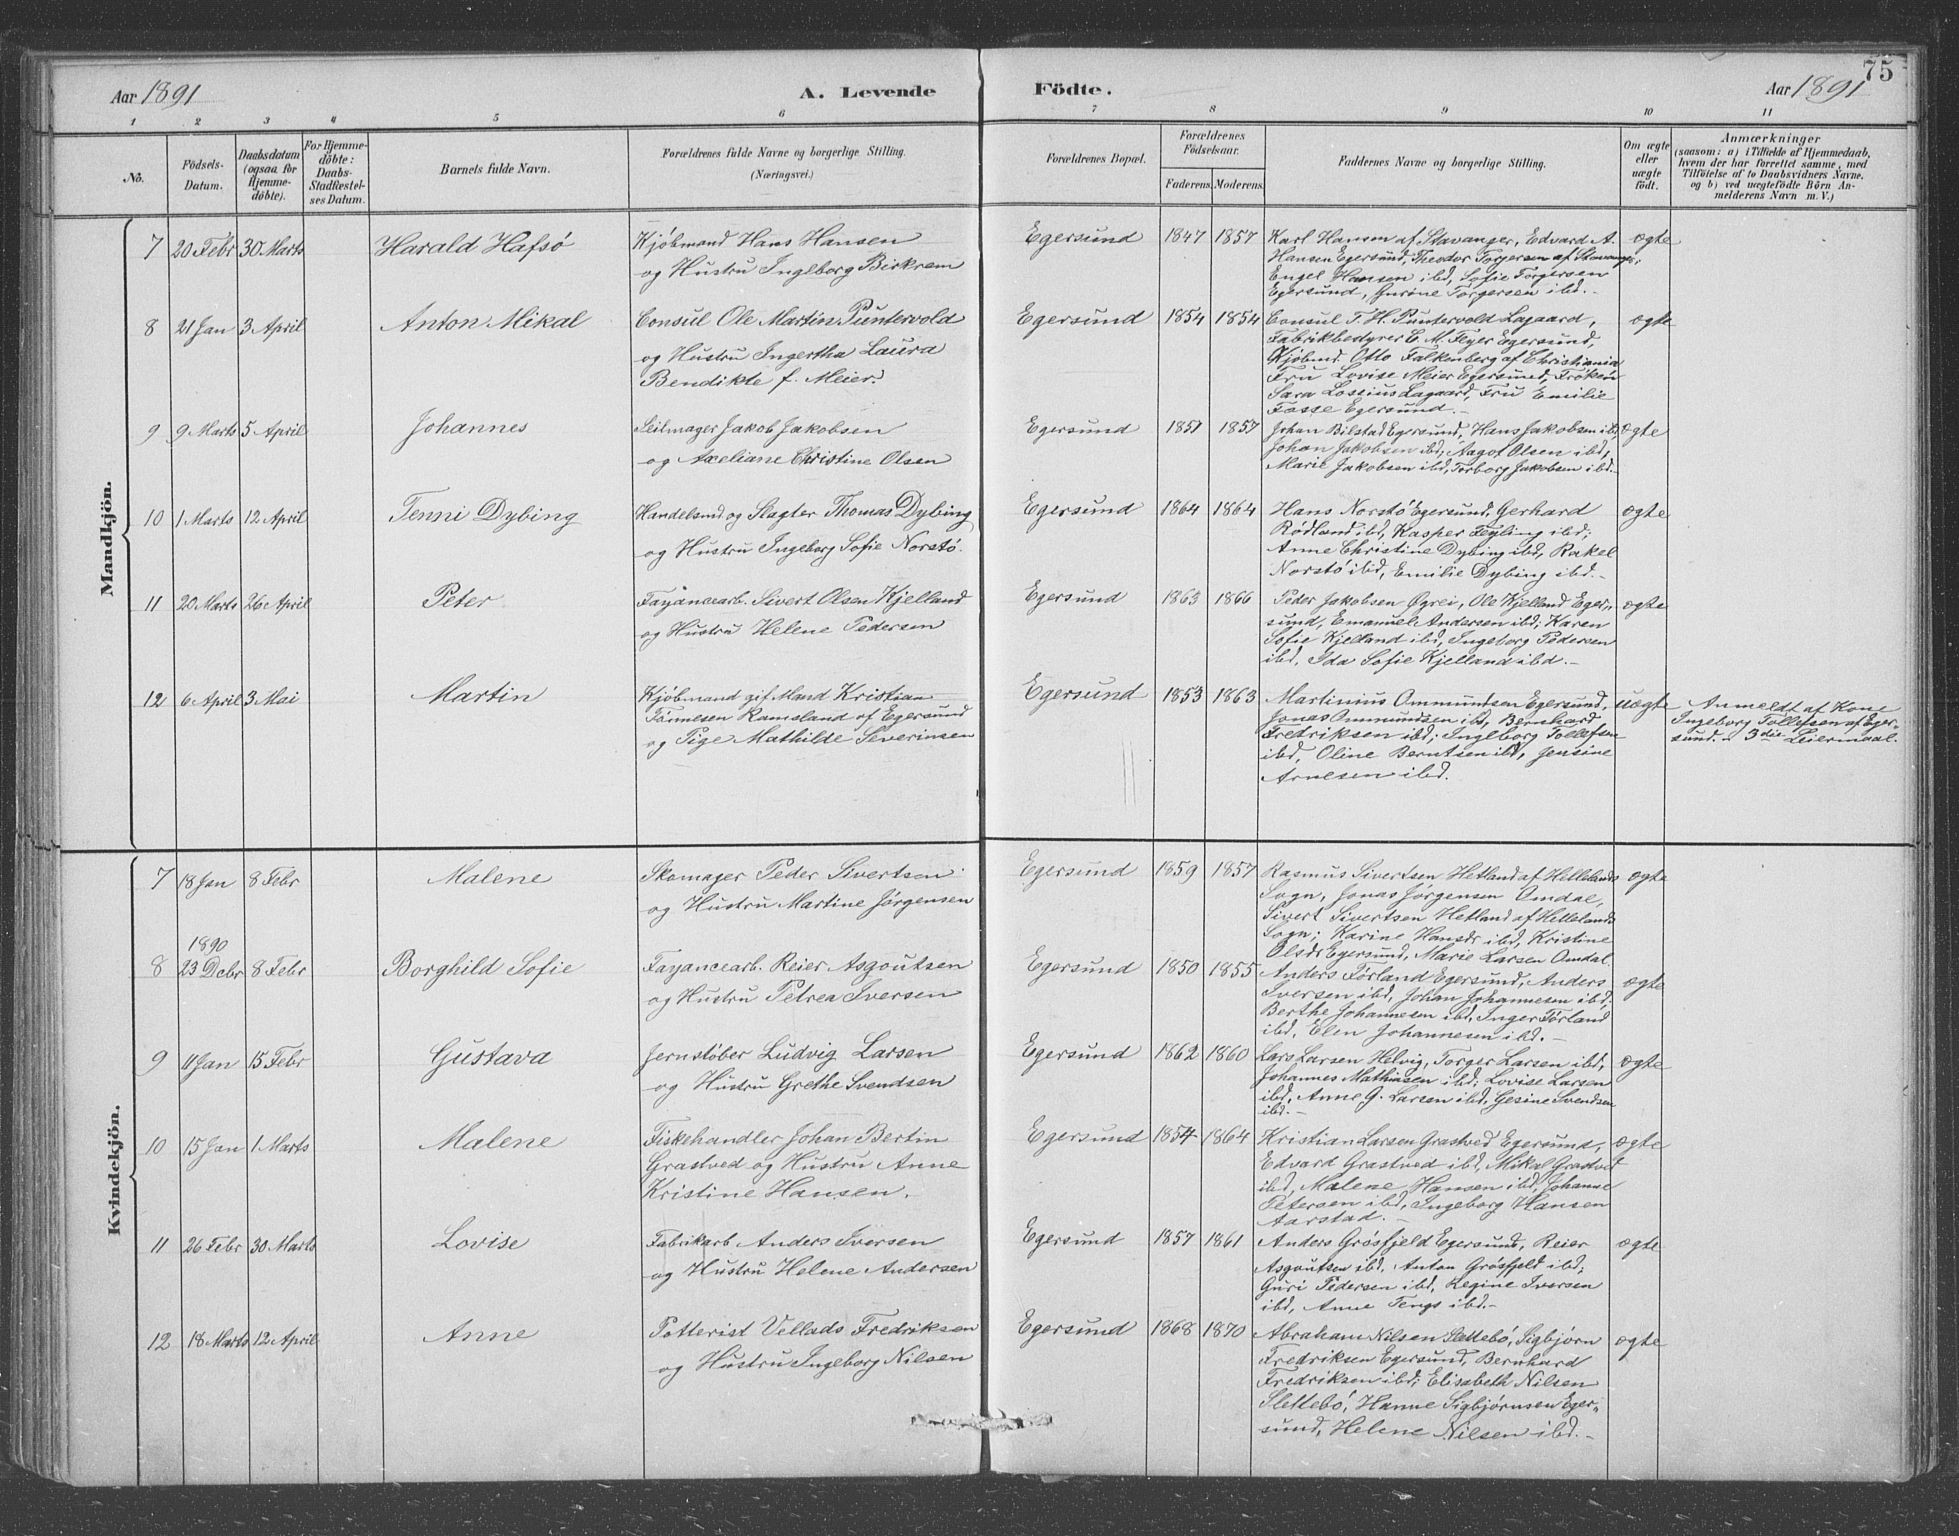 75
Aar 1891
A. Levende Födte.
Aar 1891
1 2 3 4 5 6 7 8 9 10 11
No.
Födsels-
Datum.
Daabsdatum
(ogsaa for
Hjemme-
döbte).
For Hjemme-
döbte:
Daabs-
Stadfestel-
ses Datum.
Barnets fulde Navn.
Forældrenes fulde Navne og borgerlige Stilling.
(Næringsvei.)
Forældrenes Bopæl.
Forældrenes
Födselsaar.
Faderens. Moderens.
Faddernes Navne og borgerlige Stilling.
Om ægte
eller
uægte
födt.
Anmærkninger
(saasom: a) i Tilfælde af Hjemmedaab,
hvem der har forrettet samme, med
Tilföielse af to Daabsvidners Navne,
og b) ved uægtefödte Börn An-
melderens Navn m. V.)
Mandkjön.
7 20 Febr 30 Marts Harald Hafsø
Kjøbmand Hans Hansen
og Hustru Ingeborg Birkrem
Egersund 1847 1857
Karl Hansen af Stavanger, Edvard A.
Hansen Egersund, Theodor Torgersen af Stavanger,
Engel Hansen ibd, Sofie Torgersen
Egersund, Gurine Torgersen ibd.-
ægte
8 21 Jan 3 April Anton Mikal
Consul Ole Martin Puntervold
og Hustru Ingertha Laura
Bendikte f. Meier.
Egersund 1854 1854
Consul T. H. Puntervold Lagaard,
Fabrikbestyrer C. M. Feyer Egersund,
Kjøbmd. Otto Falkenberg af Christiania
Fru Lovise Meier Egersund, Frøken
Sara Lossius Lagaard, Fru Emilie
Fosse Egersund.-
ægte
9 9 Marts 5 April Johannes
Seilmager Jakob Jakobsen
og Axeliane Christine Olsen
Egersund 1851 1857
Johan Bilstad Egersund, Hans Jakobsen ibd,
Johan Jakobsen ibd, Aagot Olsen ibd,
Marie Jakobsen ibd, Torborg Jakobsen ibd.
ægte
10 1 Marts 12 April Tenni Dybing
Handelsmd og Slagter Thomas Dybing
og Hustru Ingeborg Sofie Norstø.
Egersund 1864 1864
Hans Norstø Egersund, Gerhard
Rødland ibd, Kasper Feyling ibd;
Anne Christine Dybing ibd, Rakel
Norstø ibd, Emilie Dybing ibd.-
ægte
11 20 Marts 26 April Peter
Fayancearb. Sivert Olsen Kjelland
og Hustru Helene Pedersen
Egersund 1863 1866
Peder Jakobsen Øgrei, Ole Kjelland Eger-
sund, Emanuel Andersen ibd; Karen
Sofie Kjelland ibd, Ingeborg Pedersen
ibd, Ida Sofie Kjelland ibd.-
ægte
12 6 April 3 Mai Martin
Kjøbmand gif. Mand Kristian
Tønnesen Ramsland af Egersund
og Pige Mathilde Severinsen
Egersund 1853 1863
Martinius Ommundsen Egersund,
Jonas Ommundsen ibd, Bernhard
Fredriksen ibd; Ingeborg Tollefsen
ibd, Oline Berntsen ibd, Jensine
Arnesen ibd.
uægte
Anmeldt af Kone
Ingeborg Tollefsen af Eger-
sund.- 3die Leiermaal.
Kvindekjön.
7 18 Jan 8 Febr Malene
Skomager Peder Sivertsen
og Hustru Martine Jørgensen
Egersund 1859 1857
Rasmus Sivertsen Hetland af Hellelands
Sogn, Jonas Jørgensen Omdal,
Sivert Sivertsen Hetland af Hellelands
Sogn; Karine Hansdr ibd, Kristine
Olsdr Egersund, Marie Larsen Omdal.
ægte
1890
8 23 Debr 8 Febr Borghild Sofie
Fayancearb. Reier Asgoutsen
og Hustru Petrea Iversen
Egersund 1850 1855
Anders Førland Egersund, Anders
Iversen ibd, Johan Johannesen ibd,
Berthe Johannesen ibd, Inger Førland
ibd, Elen Johannesen ibd.-
ægte
9 11 Jan 15 Febr Gustava
Jernstøber Ludvig Larsen
og Hustru Grethe Svendsen
Egersund 1862 1860
Lars Larsen Helvig, Torger Larsen ibd,
Johannes Mathiasen ibd; Lovise Larsen
ibd, Anne G. Larsen ibd, Gesine Svendsen
ibd.-
ægte
10 15 Jan 1 Marts Malene
Fiskehandler Johan Bertin
Grastved og Hustru Anne
Kristine Hansen.
Egersund 1854 1864
Kristian Larsen Grastved Egersund,
Edvard Grastved ibd, Mikal Grastved
ibd, Malene Hansen ibd, Johanne
Petersen ibd, Ingeborg Hansen
Aarstad.-
ægte
11 26 Febr 30 Marts Lovise
Fabrikarb Anders Iversen
og Hustru Helene Andersen
Egersund 1857 1861
Anders Grøsfjeld Egersund, Reier
Asgoutsen ibd, Anton Grøsfjeld ibd;
Guri Pedersen ibd, Regine Iversen
ibd, Anne Tengs ibd.-
ægte
12 18 Marts 12 April Anne
Potterist Vellads Fredriksen
og Hustru Ingeborg Nilsen
Egersund 1868 1870
Abraham Nilsen Slettebø, Sigbjørn
Fredriksen Egersund, Bernhard
Fredriksen ibd; Elisabeth Nilsen
Slettebø, Hanne Sigbjørnsen Eger-
sund, Helene Nilsen ibd.-
ægte